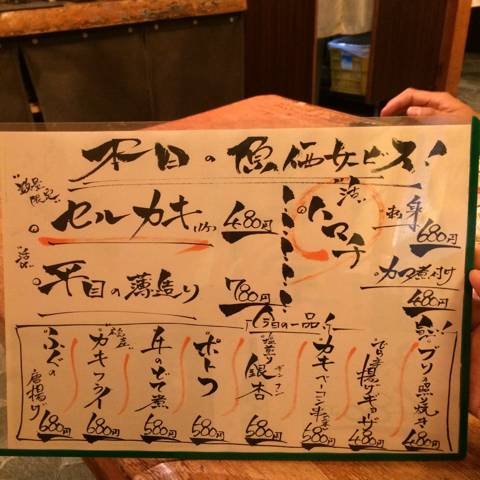 本日の原価サービス!
数量
限定
セルカキ 1ヶ 480円
活〆
平目の薄造り 780円
活
トロハチ
お刺身 680円
カマ煮付け 480円
今日の一品
ブリの照り焼き 480円
揚げギョーザ 480円
カキベーコン串 580円
塩煎り 銀杏 ギンナン 580円
ポトフ 580円
牛のどて煮 580円
カキフライ 680円
ふぐの唐揚げ 680円